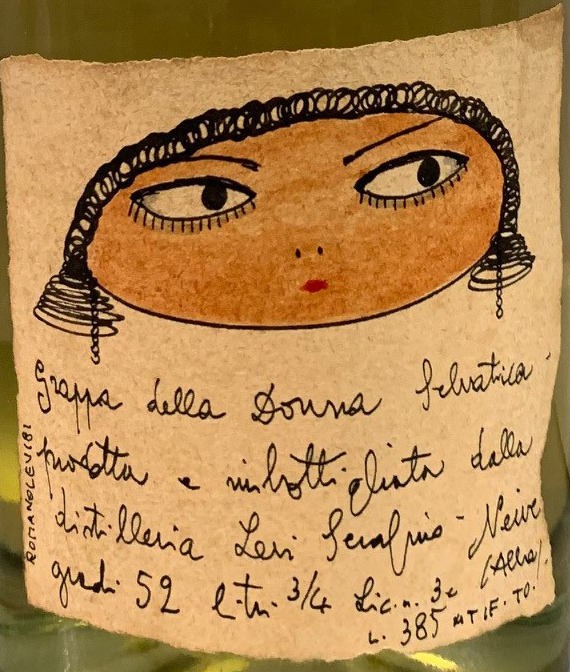 Grappa della Donna Selvatica -
prodotta e imbottigliata dalla
distilleria Levi Serafino - Neive
(Alba).
gradi 52 litri 3/4 Lic. n. 3
L. 385 MTIF. TO.
ROMANOLEVI81